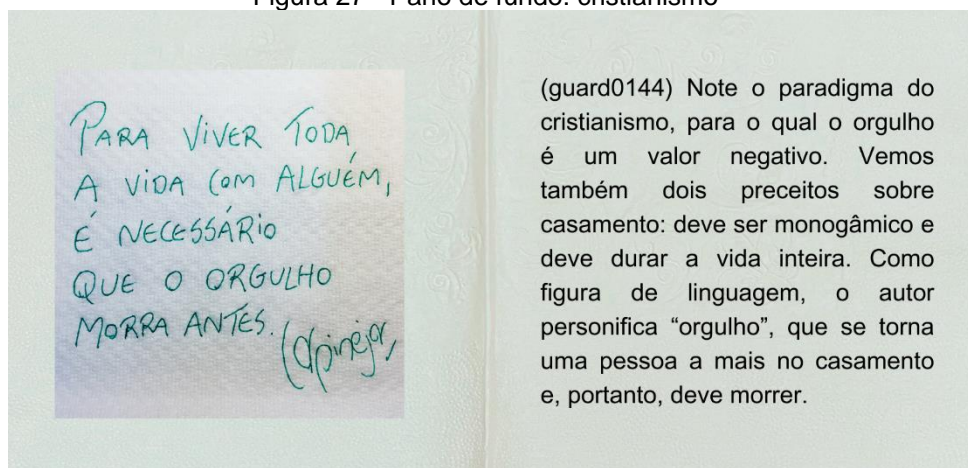 Figura 27 - Pano de fundo: cristianismo
PARA VIVER TODA
A VIDA COM ALGUÉM,
É NECESSÁRIO
QUE O ORGULHO
MORRA ANTES.
Carpinejar
(guard0144) Note o paradigma do
cristianismo, para o qual o orgulho
é um valor negativo. Vemos
também dois preceitos sobre
casamento: deve ser monogâmico e
deve durar a vida inteira. Como
figura de linguagem, o autor
personifica “orgulho”, que se torna
uma pessoa a mais no casamento
e, portanto, deve morrer.